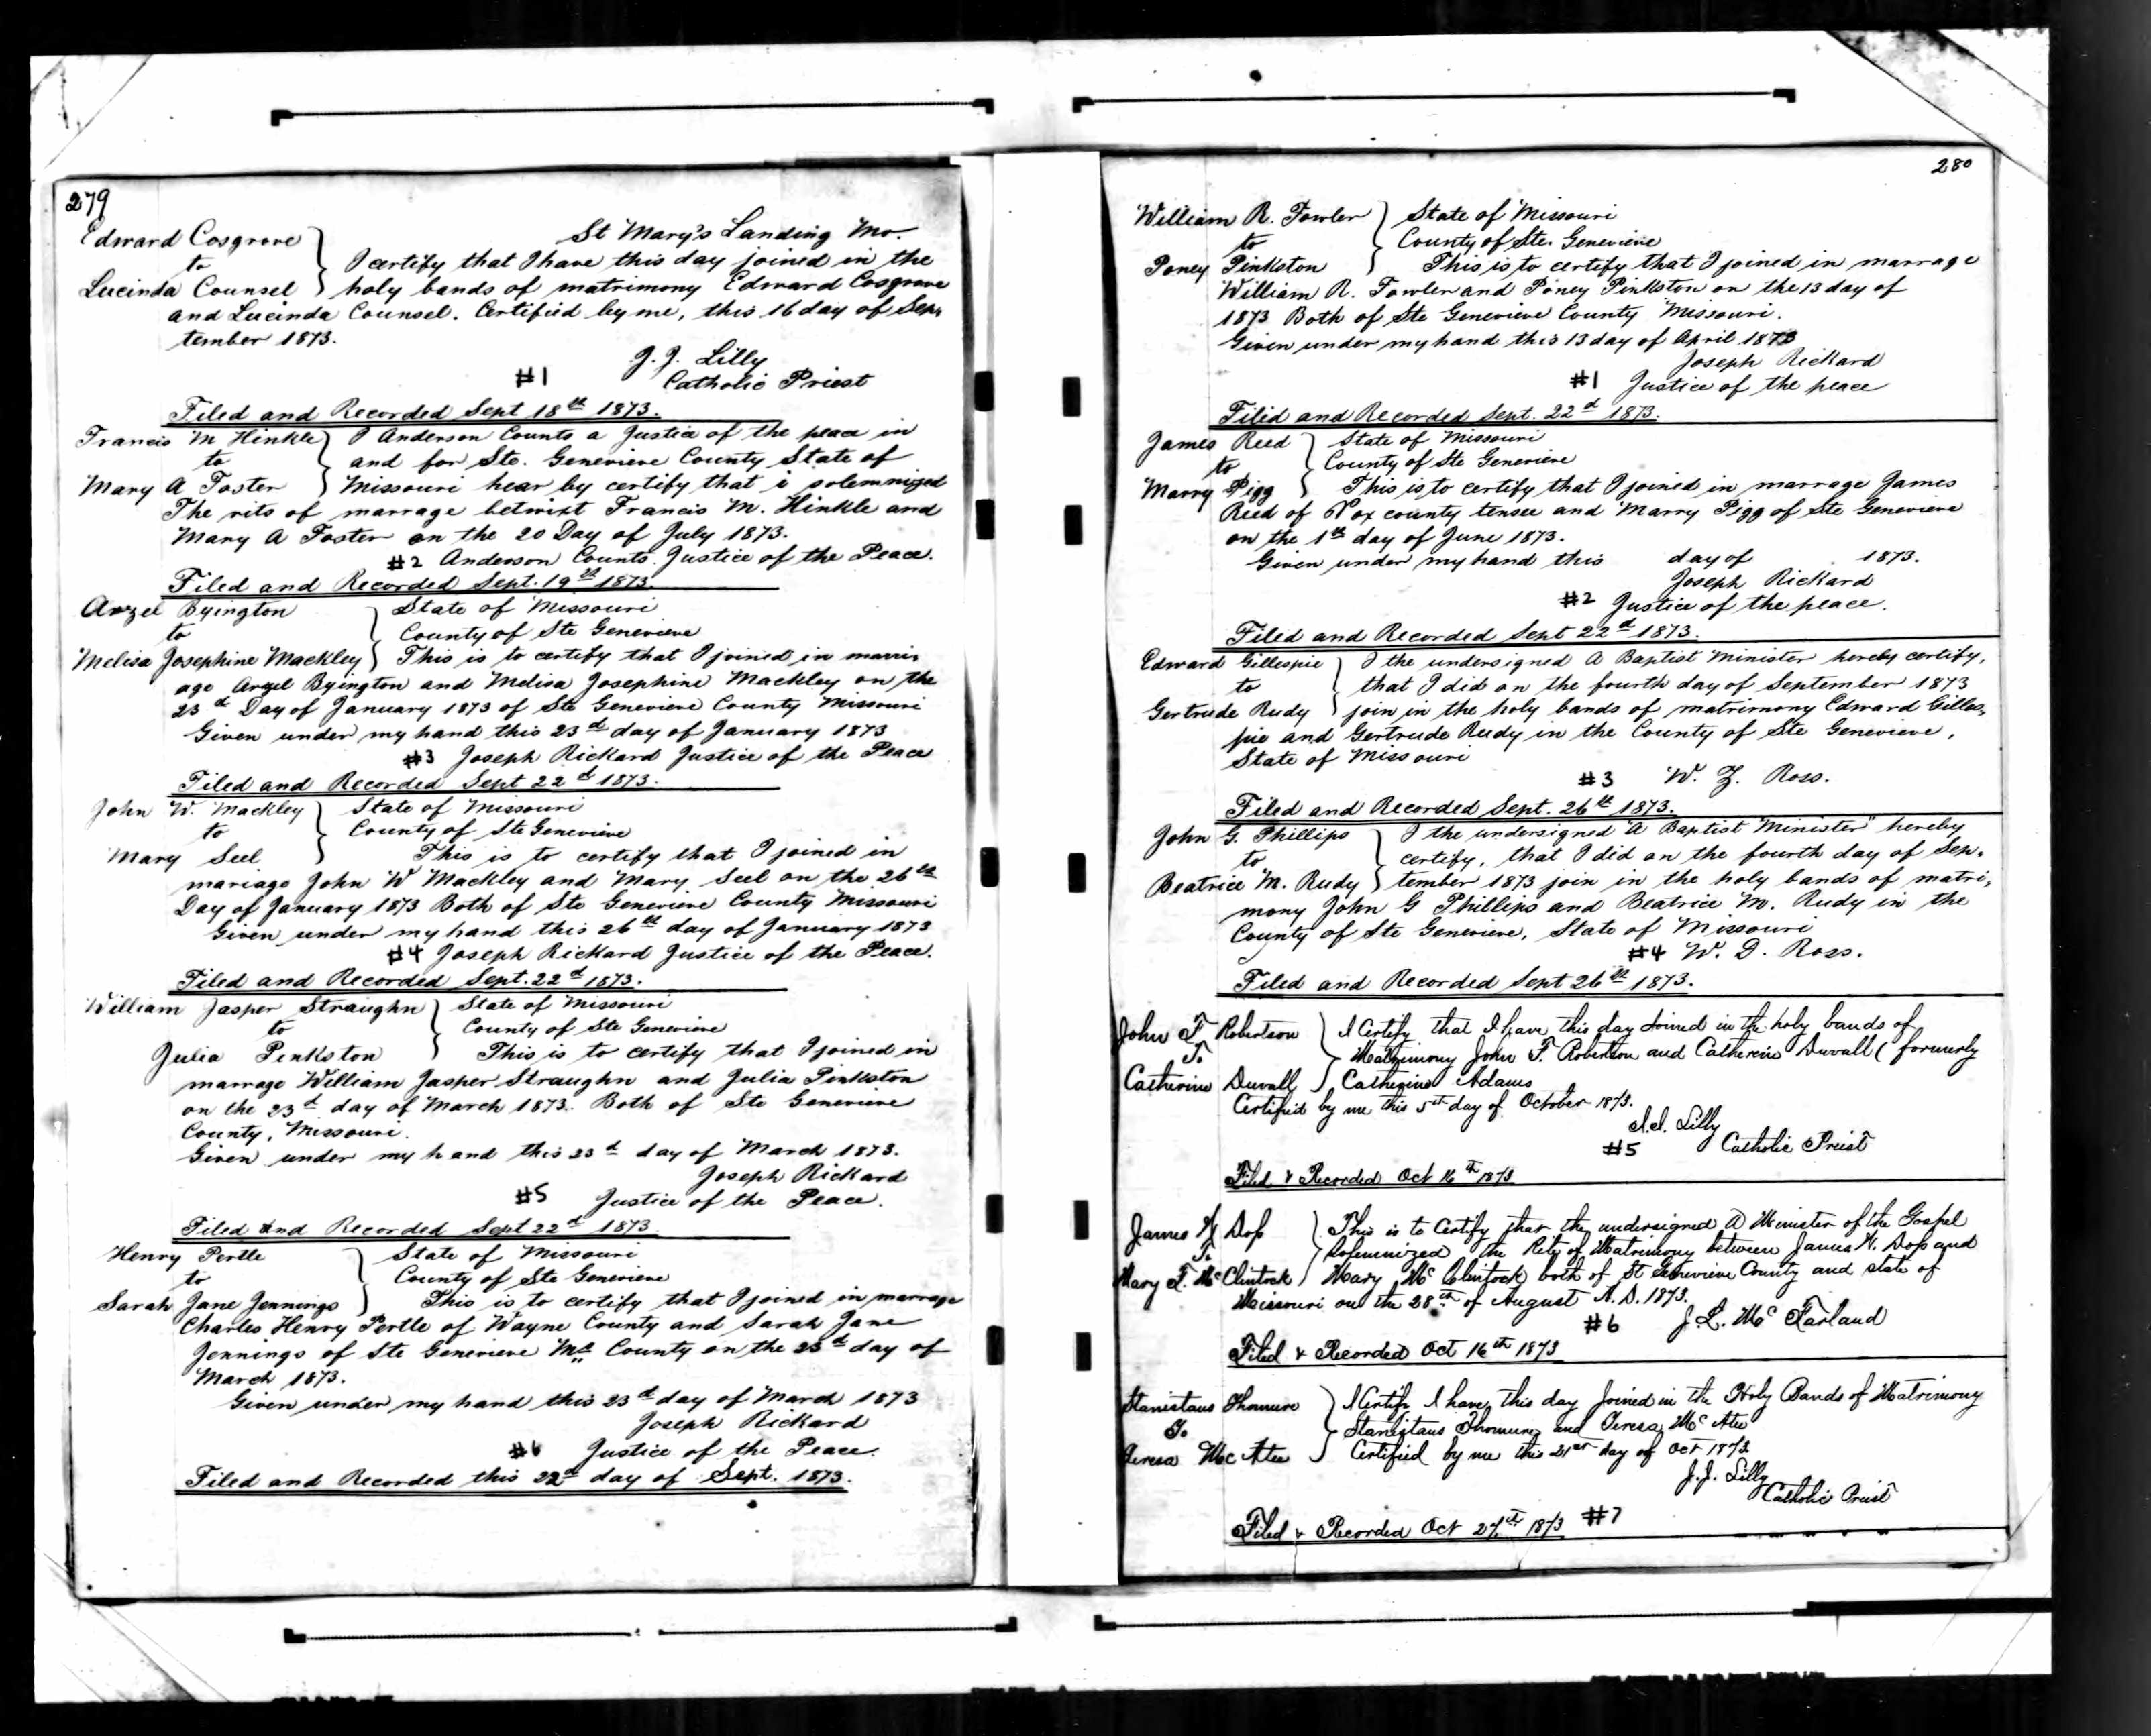 279
Edward Cosgrove
to
Lucinda Counsel
St Mary's Landing Mo.
I certify that I have this day joined in the
holy bands of matrimony Edward Cosgrove
and Lucinda Counsel. Certified by me, this 16 day of Sep,
tember 1873.
J. J. Lilly
#1 Catholic Priest
Filed and Recorded Sept 18th 1873.
Francis M Hinkle
to
Mary A Foster
I Anderson Counts a Justice of the peace in
and for Ste. Genevieve County State of
Missouri hear by certify that i solemnized
The rits of marrage betwixt Francis M. Hinkle and
Mary A Foster on the 20 Day of July 1873.
#2 Anderson Counts Justice of the Peace.
Filed and Recorded Sept. 19th 1873.
Arzel Byington
to
Melisa Josephine Mackley
State of Missouri
County of Ste Genevieve
This is to certify that I joined in marri,
age Arzel Byington and Melisa Josephine Mackley on the
23d Day of January 1873 of Ste Genevieve County Missouri
Given under my hand this 23d day of January 1873
#3 Joseph Rickard Justice of the Peace
Filed and Recorded Sept 22d 1873.
John W. Mackley
to
Mary Seel
State of Missouri
County of Ste Genevieve
This is to certify that I joined in
mariage John W Mackley and Mary Seel on the 26th
Day of January 1873 Both of Ste Genevieve County Missouri
Given under my hand this 26th day of January 1873
#4 Joseph Rickard Justice of the Peace.
Filed and Recorded Sept. 22d 1873.
William Jasper Straughn
to
Julia Pinkston
State of Missouri
County of Ste Genevieve
This is to certify that I joined in
marrage William Jasper Straughn and Julia Pinkston
on the 23d day of March 1873. Both of Ste Genevieve
County, Missouri.
Given under my hand this 23d day of March 1873.
Joseph Rickard
#5 Justice of the Peace.
Filed and Recorded Sept 22d 1873
Henry Pertle
to
Sarah Jane Jennings
State of Missouri
County of Ste Genevieve
This is to certify that I joined in marrage
Charles Henry Pertle of Wayne County and Sarah Jane
Jennings of Ste Genevieve Mo County on the 23d day of
March 1873.
Given under my hand this 23d day of March 1873
Joseph Rickard
#6 Justice of the Peace.
Filed and Recorded this 22d day of Sept. 1873.
280
William R. Fowler
to
Poney Pinkston
State of Missouri
County of Ste. Genevieve
This is to certify that I joined in marrage
William R. Fowler and Poney Pinkston on the 13 day of
1873 Both of Ste Genevieve County Missouri.
Given under my hand this 13 day of April 1873
Joseph Rickard
#1 Justice of the peace
Filid and Recorded Sept. 22d 1873.
James Reed
to
Marry Pigg
State of Missouri
County of Ste Genevieve
This is to certify that I joined in marrage James
Reed of Nox county tensee and Marry Pigg of Ste Genevieve
on the 1th day of June 1873.
Given under my hand this day of 1873.
Joseph Rickard
#2 Justice of the peace.
Filed and Recorded Sept 22d 1873.
Edward Gillespie
to
Gertrude Rudy
I the undersigned A Baptist Minister hereby certify,
that I did on the fourth day of September 1873
join in the holy bands of matrimony Edward Gilles,
pie and Gertrude Rudy in the County of Ste Genevieve,
State of Missouri
#3 W. Z. Ross.
Filed and Recorded Sept. 26th 1873.
John G. Phillips
to
Beatrice M. Rudy
I the undersigned "A Baptist Minister" hereby
certify, that I did on the fourth day of Sep,
tember 1873 join in the holy bands of matri,
mony John G Phillips and Beatrice M. Rudy in the
County of Ste Genevieve, State of Missouri
#4 W. D. Ross.
Filed and Recorded Sept 26th 1873.
John F Robertson
To
Catherine Duvall
I Certify that I have this day Joined in the holy bands of
Matrimony John F. Robertson and Catherin Duvall ( formerly
Catherine Adams
Certified by me this 5th day of October 1873.
J. J. Lilly
#5 Catholic Preist
Filed & Recorded Oct 16th 1873
James H Doss
To
Mary F. McClintock
This is to Certify that the undersigned A Minister of the Gospel
Solemnized the Rites of Matrimony between James H. Doss and
Mary McClintock both of St Genevieve County and state of
Missouri on the 28th of August A. D. 1873.
#6 J. L. McFarland
Filed & Recorded Oct 16th 1873
Stanistaus Thomure
To
Teresa McAtee
I Certify I have this day Joined in the Holy Bands of Matrimony
Stanistaus Thomure and Teresa McAtee
Certified by me this 21st day of Oct 1873
J. J. Lilly
Catholic Preist
Filed & Recorded Oct 27th 1873 #7